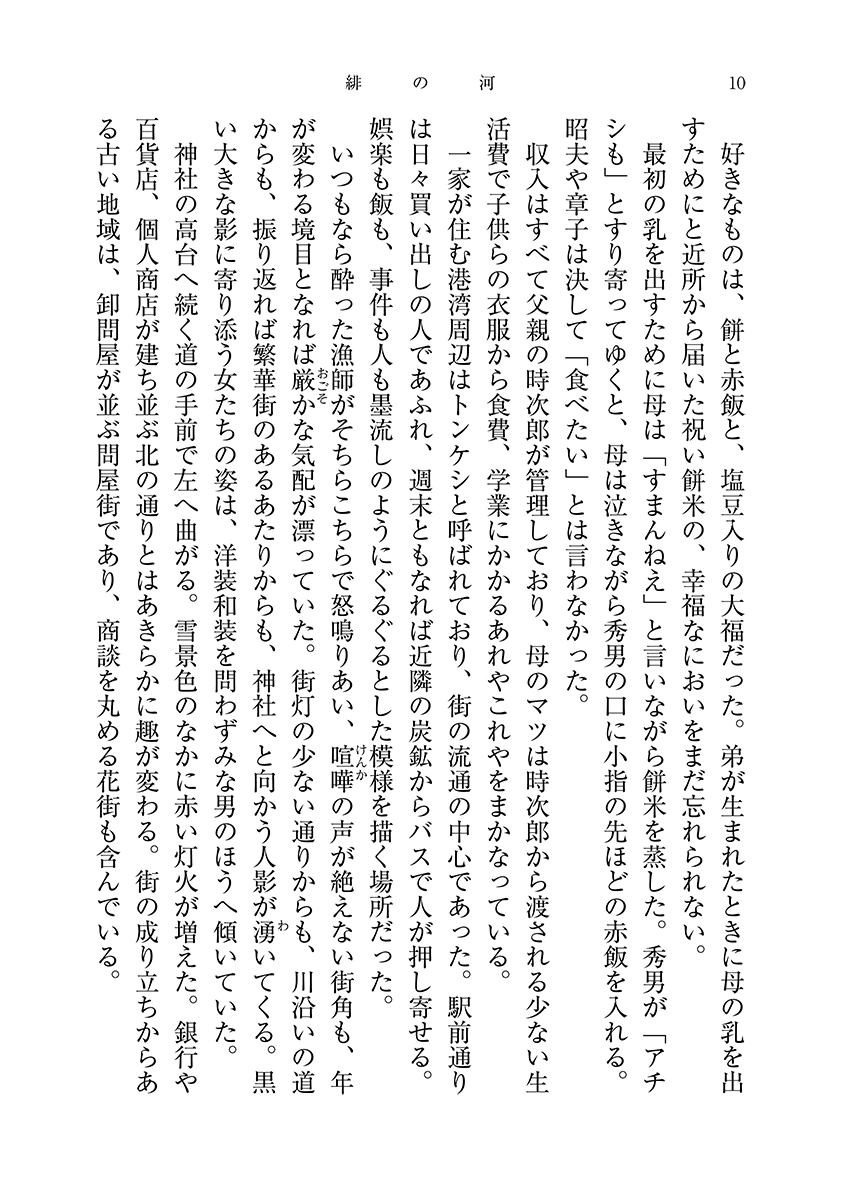 緋の河
10
好きなものは、餅と赤飯と、塩豆入りの大福だった。弟が生まれたときに母の乳を出
すためにと近所から届いた祝い餅米の、幸福なにおいをまだ忘れられない。
最初の乳を出すために母は「すまんねえ」と言いながら餅米を蒸した。秀男が「アチ
シも」とすり寄ってゆくと、母は泣きながら秀男の口に小指の先ほどの赤飯を入れる。
昭夫や章子は決して「食べたい」とは言わなかった。
収入はすべて父親の時次郎が管理しており、母のマツは時次郎から渡される少ない生
活費で子供らの衣服から食費、学業にかかるあれやこれやをまかなっている。
一家が住む港湾周辺はトンケシと呼ばれており、街の流通の中心であった。駅前通り
は日々買い出しの人であふれ、週末ともなれば近隣の炭鉱からバスで人が押し寄せる。
娯楽も飯も、事件も人も墨流しのようにぐるぐるとした模様を描く場所だった。
いつもなら酔った漁師がそちらこちらで怒鳴りあい、喧嘩の声が絶えない街角も、年
が変わる境目となれば厳かな気配が漂っていた。街灯の少ない通りからも、川沿いの道
からも、振り返れば繁華街のあるあたりからも、神社へと向かう人影が湧いてくる。黒
い大きな影に寄り添う女たちの姿は、洋装和装を問わずみな男のほうへ傾いていた。
神社の高台へ続く道の手前で左へ曲がる。雪景色のなかに赤い灯火が増えた。銀行や
百貨店、個人商店が建ち並ぶ北の通りとはあきらかに趣が変わる。街の成り立ちからあ
る古い地域は、卸問屋が並ぶ問屋街であり、商談を丸める花街も含んでいる。